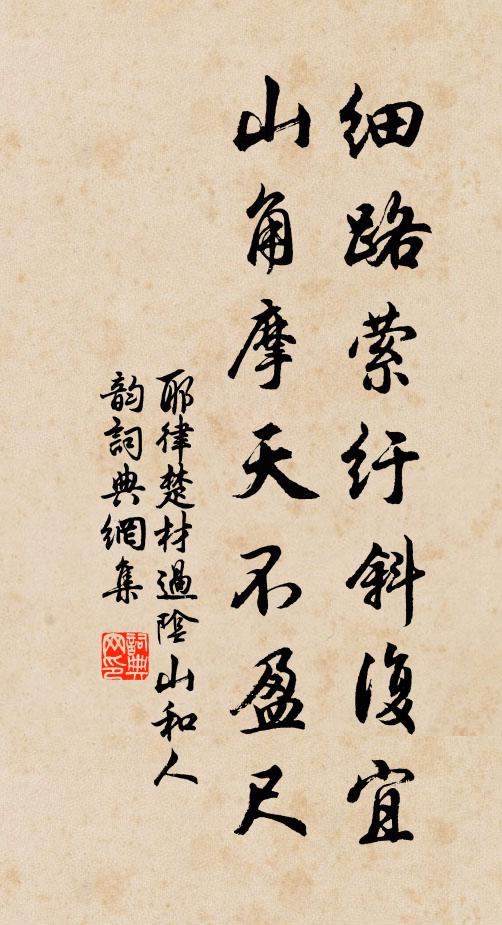 細路縈紆斜復直
山角摩天不盈尺
耶律楚材過陰山和人
韵詞典網集
詞典
网印